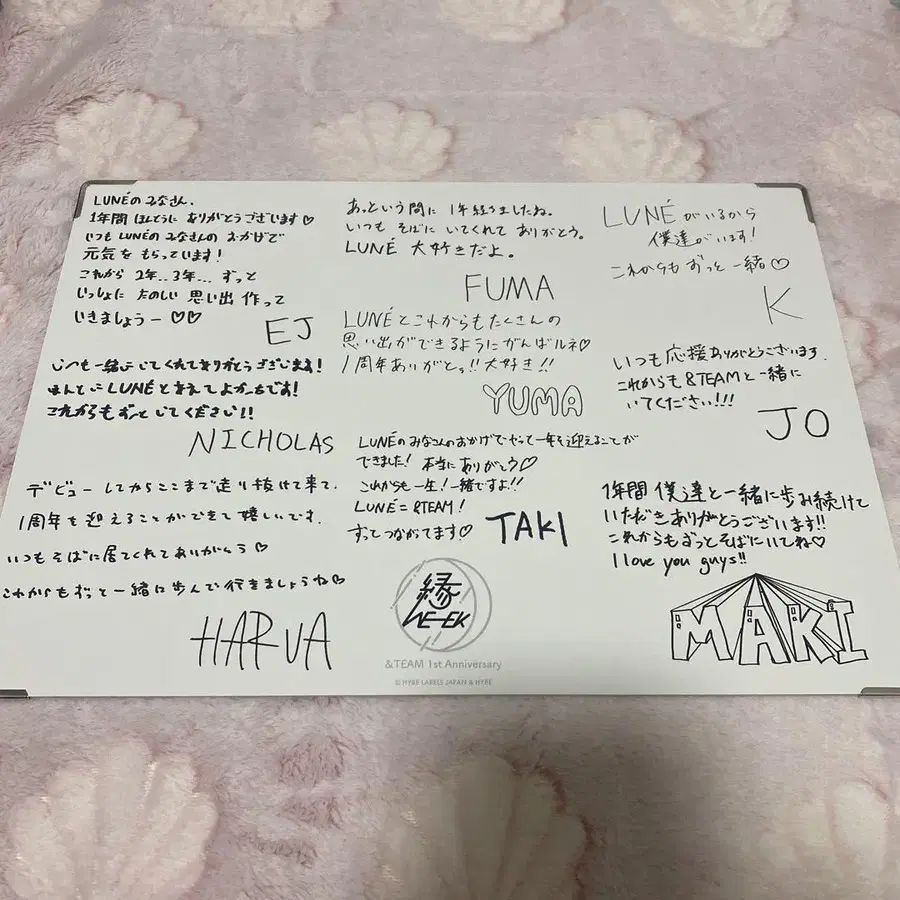 LUNÉのみなさん、
1年間 ほんとうに ありがとうございます♡
いつも LUNÉのみなさんの おかげで
元気を もらっています!
これから 2年...3年... ずっと
いっしょに たのしい 思い出 作って
いきましょうー ♡♡
EJ
あっという間に 1年経ちましたね。
いつも そばに いてくれて ありがとう。
LUNÉ 大好きだよ。
FUMA
LUNÉがいるから
僕達がいます!
これからも ずっと 一緒♡
K
いつも一緒にいてくれてありがとうございます!
ほんとにLUNÉと会えてよかったです!
これからもずっといてください!!
NICHOLAS
LUNÉとこれからもたくさんの
思い出ができるようにがんばルネ♡
1周年ありがとっ!!大好き!!
YUMA
いつも応援ありがとうございます.
これからも &TEAMと一緒に
いてください!!!
JO
デビューしてからここまで走り抜けて来て、
1周年を迎えることができて嬉しいです.
いつもそばに居てくれてありがとう♡
これからもずっと一緒に歩んで行きましょうね♡
HARUA
LUNÉのみなさんのおかげで一年を迎えることが
できました! 本当にありがとう♡
これからも一生!一緒ですよ!!
LUNÉ=&TEAM!
ずっとつながてます♡
TAKI
1年間 僕達と一緒に歩み続けて
いただきありがとうございます!!
これからもずっとそばにいてね♡
I love you guys!!
MAKI
縁
WE-EK
&TEAM 1st Anniversary
© HYBE LABELS JAPAN & HYBE